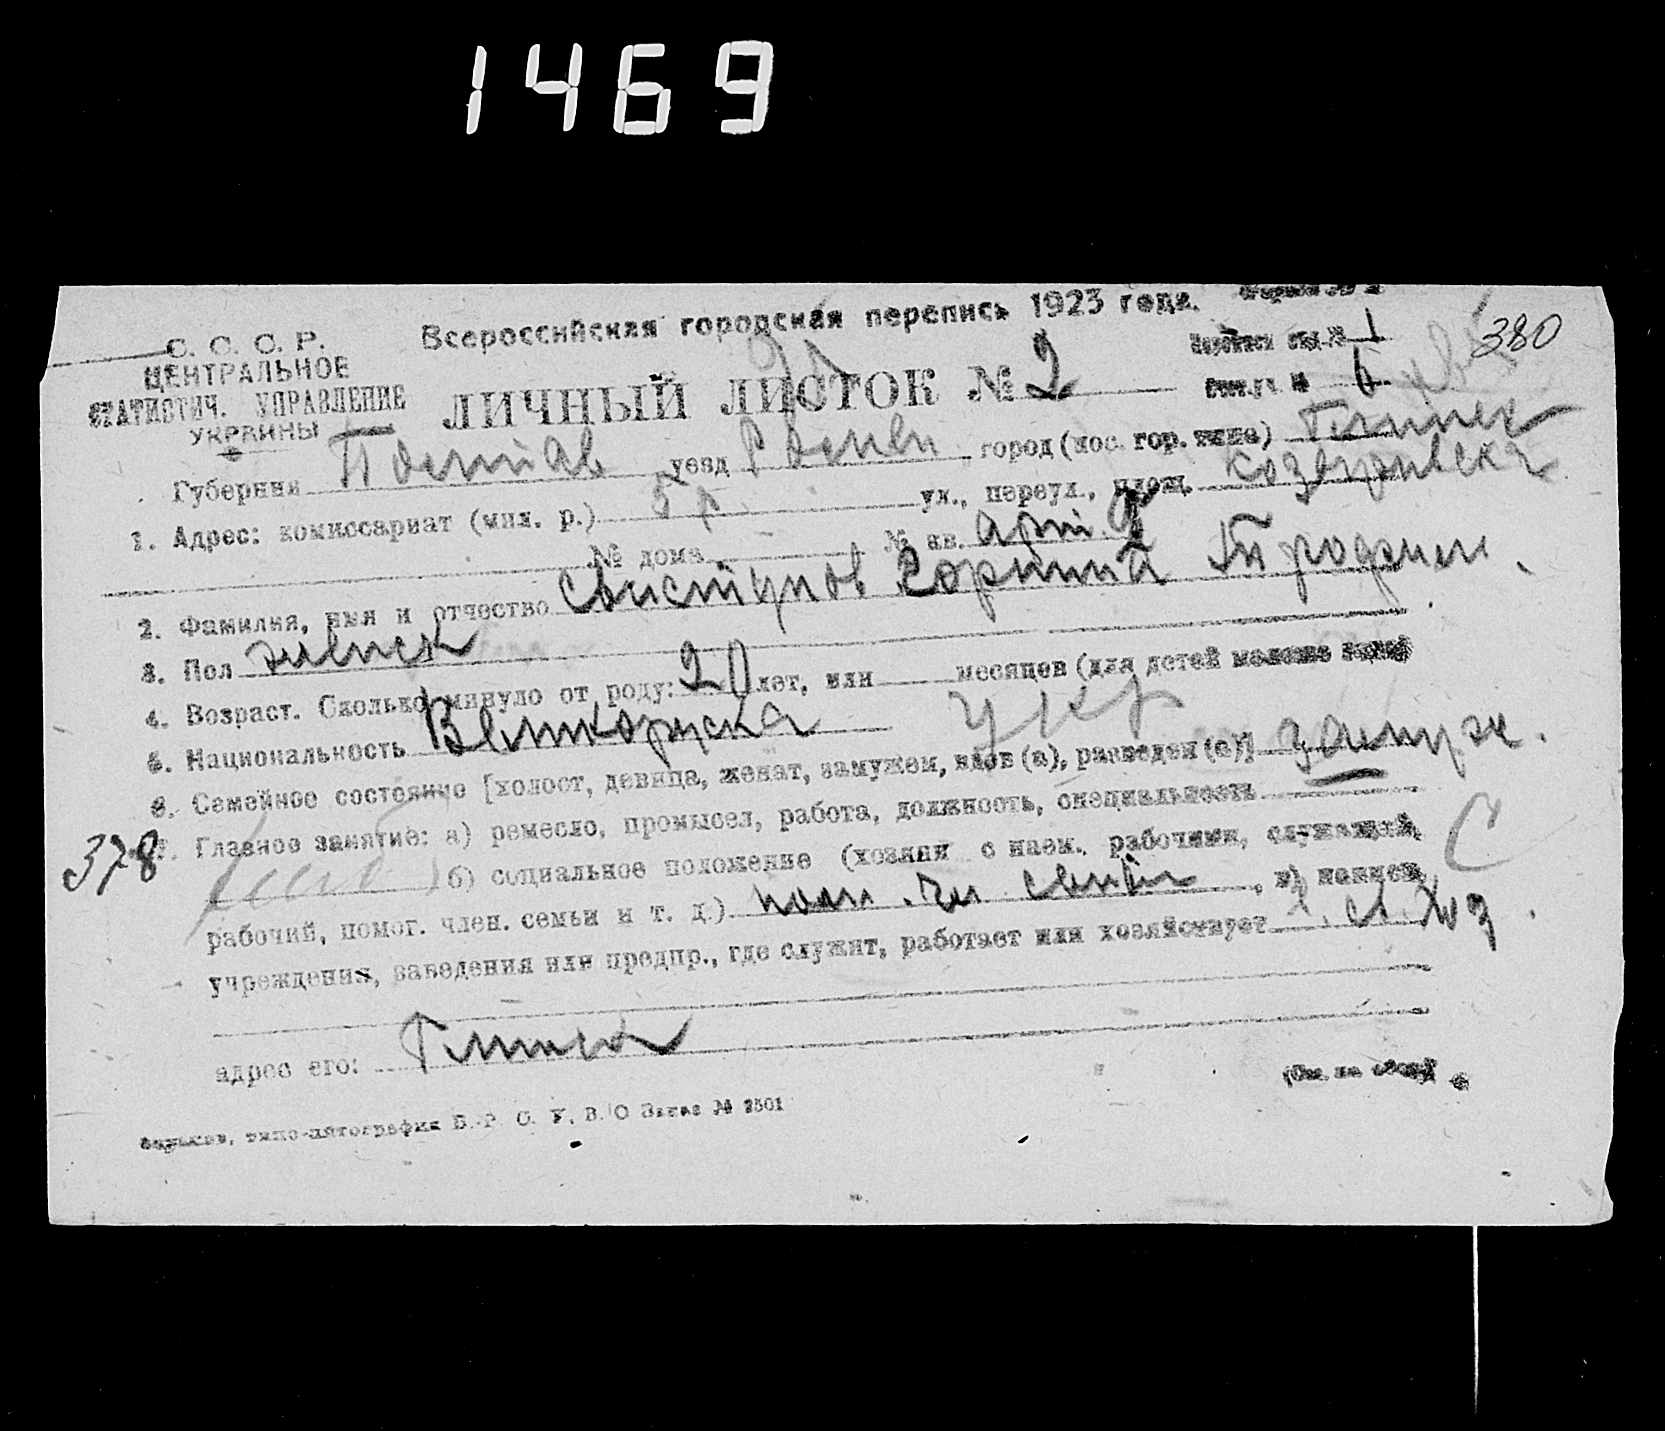 1469
Всероссийская городская перепись 1923 года.
380
С. С. С. Р.
ЦЕНТРАЛЬНОЕ
СТАТИСТИЧ. УПРАВЛЕНИЕ
УКРАИНЫ
1
ЛИЧНЫЙ ЛИСТОК № 2
6
Губерния Полтав уезд Ромен город (пос. гор. типа)
1. Адрес: комиссариат (мил. р.) ул., переул., площ.
№ дома № кв.
2. Фамилия, имя и отчество Свистунов Трофим.
3. Пол женск
4. Возраст. Сколько минуло от роду: 20 лет, или месяцев (для детей моложе
5. Национальность Великоруска Укр
6. Семейное состояние [холост, девица, женат, замужем, вдов (а), разведен (а)] замуж.
378
7. Главное занятие: а) ремесло, промысел, работа, должность, специальность
С
б) социальное положение (хозяин с наем. рабочими, служащий,
рабочий, помог. член. семьи и т. д.) пом. чл семьи, в) наимен.
учреждения, заведения или предпр., где служит, работает или хозяйствует
адрес его: Глинск
Харьков, типо-литография Заказ № 2501